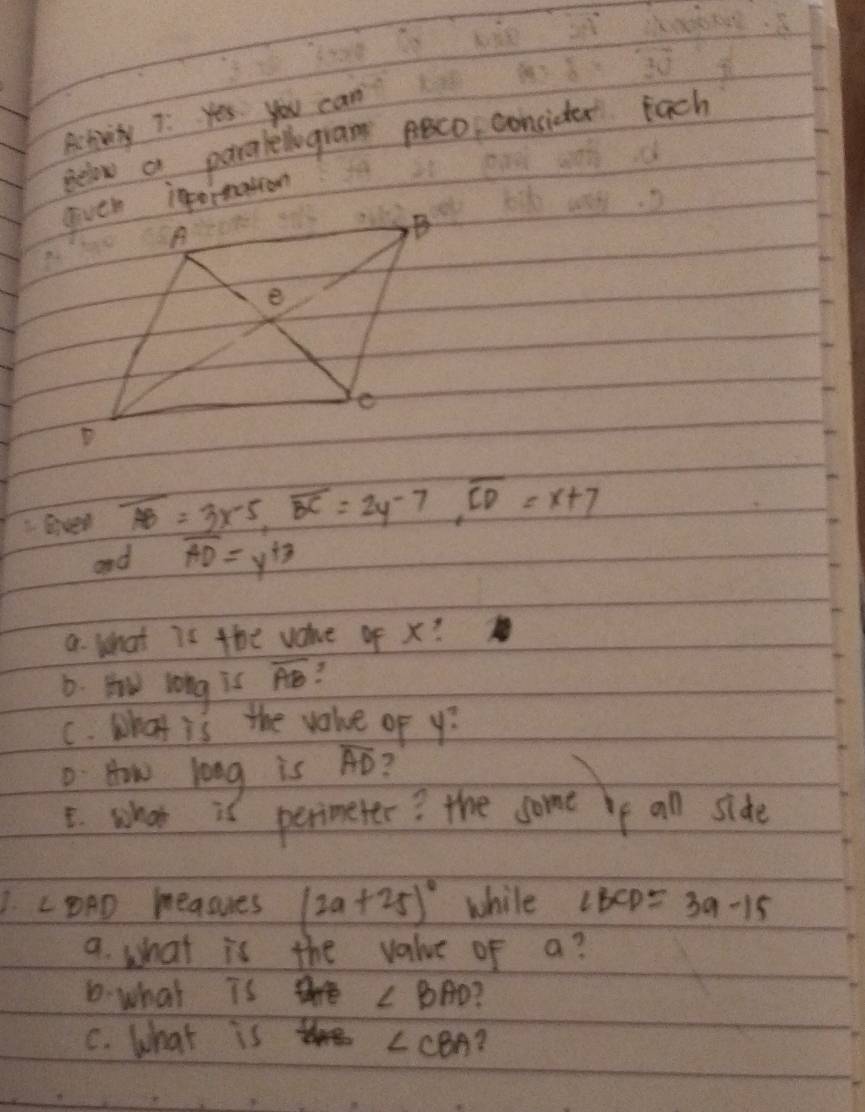 Activity 7: Yes you can
Below a paralellogram ABCD, consider Each
given information
A
B
e
C
D
Given AB = 3x-5, BC = 2y-7, CD = x+7
and AD = y+3
a. What is the value of x?
b. How long is AB?
C. What is the value of y?
D. How long is AD?
E. What is perimeter? the some of all side
∠BAD measures (2a+25)° while ∠BCD = 3a-15
a. What is the value of a?
b. what is ∠BAD?
C. What is ∠CBA?